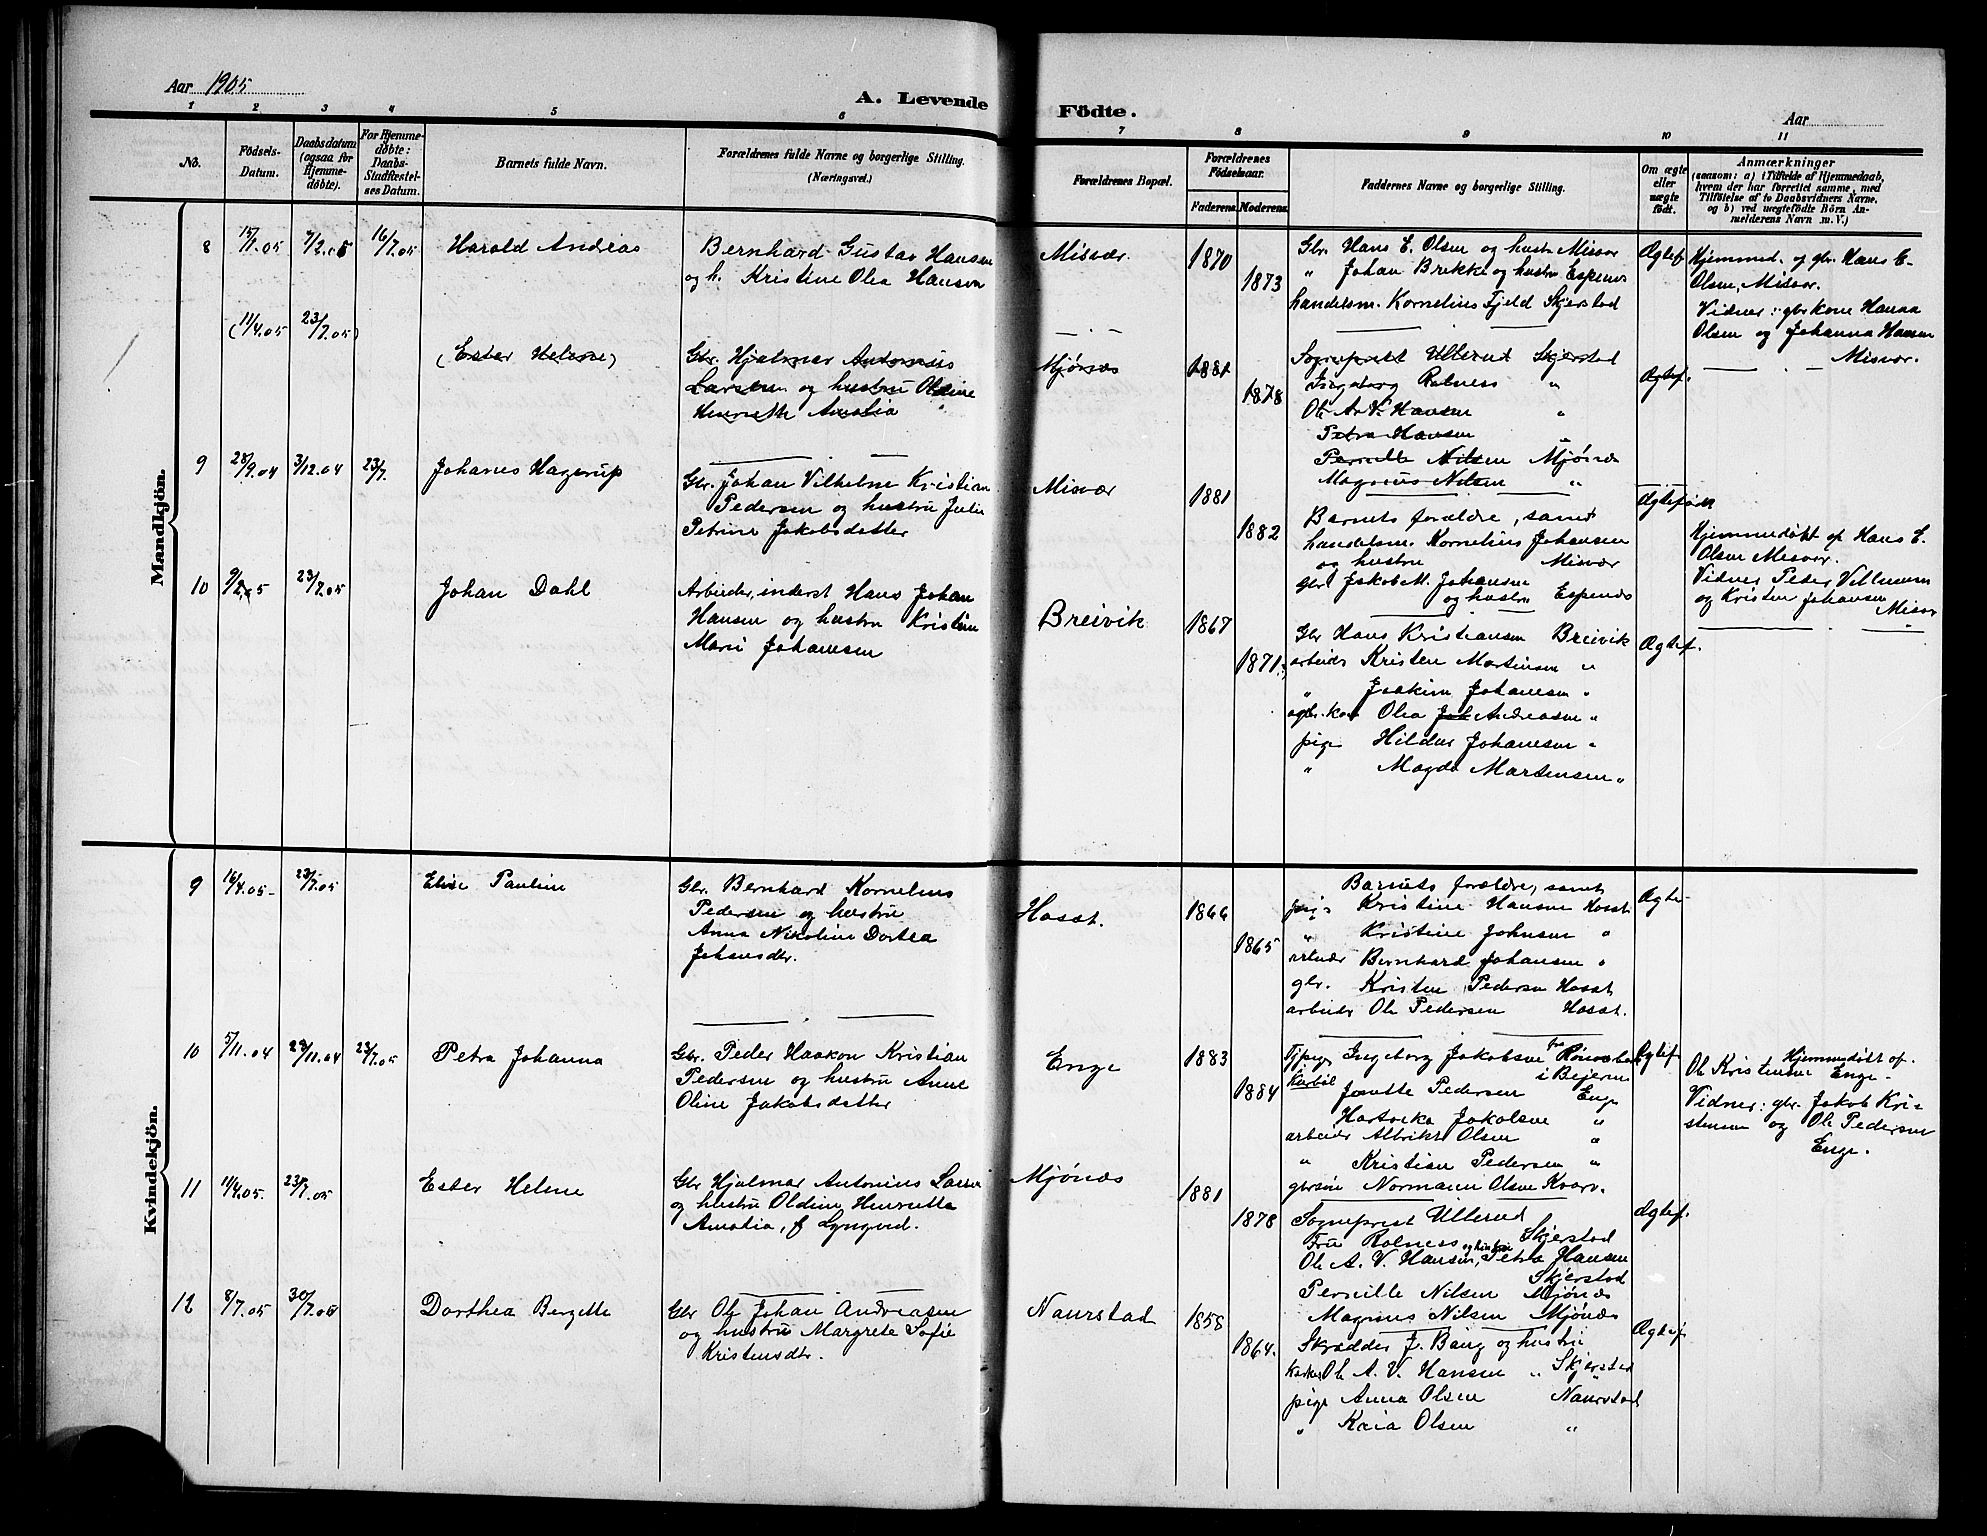 Aar 1905
A. Levende Födte.
Aar
1 2 3 4 5 6 7 8 9 10 11
No.
Födsels-
Datum.
Daabsdatum
(ogsaa for
Hjemme-
döbte).
For Hjemme-
döbte:
Daabs-
Stadfæstel-
ses Datum.
Barnets fulde Navn.
Forældrenes fulde Navne og borgerlige Stilling.
(Næringsvei.)
Forældrenes Bopæl.
Forældrenes
Födselsaar.
Faderens. Moderens.
Faddernes Navne og borgerlige Stilling.
Om ægte
eller
uægte
født.
Anmærkninger
(saasom: a) i Tilfælde af Hjemmedaab,
hvem der har forrettet samme, med
Tilföielse af to Daabsvidners Navne,
og b) ved uægtefödte Börn An-
melderens Navn m. V.)
Mandkjön.
8 15/1.05 7/2.05 16/7.05 Harald Andreas
Bernhard Gustav Hansen
og h. Kristine Olea Hansen
Misvær. 1870 1873
Gbr. Hans E. Olsen og hustr Misvær
" Johan Brekke og hustru Espenes
handelsm. Kornelius Fjeld Skjerstad
Ægtef
Hjemmed. af gbr. Hans E.
Olsen, Misvær.
Vidner: gbrkone Hanna
Olsen og Johanna Hansen
Misvær.
(11/4.05 23/7.05)
(Ester Helene)
Gbr. Hjalmar Antonius
Larsen og hustru Oldine
Henriette Amalia
Mjönæs 1881 1878
Sogneprest Ullerud Skjerstad
Ingeborg Rolness "
Ole A. V. Hansen "
Petra Hansen
Pernille Nilsen Mjönæs
Magnus Nilsen "
Ægtef.
9 28/9.04 3/12.04 23/7. Johanes Hagerup
Gbr. Johan Vilhelm Kristian
Pedersen og hustru Julie
Petrine Jakobsdatter
Misvær 1881 1882
Barnets forældre, samt
handelsm. Kornelius Johansen
og hustru Misvær
Gbr Jakob M. Johansen
og hustru Espenes
Ægtefödt
Hjemmedöbt af Hans E.
Olsen Misvær.
Vidner Peder Villumsen
og Kristen Johansen
Misvær
10 9/2.05 23/7.05 Johan Dahl
Arbeider, inderst Hans Johan
Hansen og hustru Kristine
Marie Johansen
Breivik 1867 1871.
Gbr Hans Kristiansen Breivik
arbeider Kristen Martinsen "
" Joakim Johansen "
gbr. kone Olea Joh Andreasen "
pige Hildur Johansen "
" Magda Martensen "
Ægtef.
Kvindekjön.
9 16/4.05 23/7.05 Elise Pauline
Gbr. Bernhard Kornelius
Pedersen og hustru
Anna Nikoline Dortea
Johansdtr.
Hosst. 1866 1865
Barnets forældre, samt
pige Kristine Hansen Hosst
" Kristine Johnsen "
arbeider Bernhard Johansen "
gbr. Kristen Pedersen Hosst
arbeider Ole Pedersen Hosst.
Ægte-
10 5/11.04 27/11.04 23/7.05 Petra Johanna
Gbr. Peder Haakon Kristian
Pedersen og hustru Anne
Oline Jakobsdatter
Enge 1883 1884
Tjpige Ingeborg Jakobsen
i Beieren
Jonette Pedersen Enge
Hartvika Jakobsen "
arbeider Albrikt Olsen "
" Kristian Pedersen "
gbrsön Normann Olsen Kvarv.
Ægtef
Hjemmedöbt af
Ole Kristensen Enge.
Vidner: gbr. Jakob Kri-
stensen og Ole Pedersen
Enge.
11 11/4.05. 23/7.05 Ester Helene
Gbr Hjalmar Antonius Larsen
og hustru Oldine Henriette
Amalia, f Lyngved.
Mjönæs 1881 1878
Sogneprest Ullerud
Fru Rolness Skjerstad
Ole A. V. Hansen, og hustru Petra Hansen
Skjerstad
Pernille Nilsen Mjönæs
Magnus Nilsen Mjönæs
Ægtef.
12 8/7.05 30/7.05 Dorthea Bergitte
Gbr Ole Johan Andreasen
og hustru Margrete Sofie
Kristensdtr.
Naurstad 1858 1864.
Skrædder J. Bang og hustru
Ole A. V. Hansen " Skjerstad
pige Anna Olsen Naurstad
" Kaia Olsen "
Ægtef